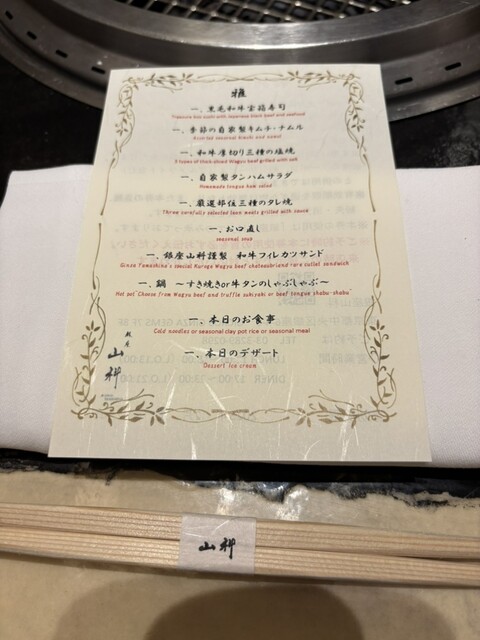 雅
一、黒毛和牛宝箱寿司
Treasure box sushi with Japanese black beef and seafood
一、季節の自家製キムチ・ナムル
Assorted seasonal kimchi and namul
一、和牛厚切り三種の塩焼
3 types of thick-sliced Wagyu beef grilled with salt
一、自家製タンハムサラダ
Homemade tongue ham salad
一、厳選部位三種のタレ焼
Three carefully selected lean meats grilled with sauce
一、お口直し
seasonal soup
一、銀座山科謹製 和牛フィレカツサンド
Ginza Yamashina's special Kuroge Wagyu beef chateaubriand rare cutlet sandwich
一、鍋 ～すき焼きor牛タンのしゃぶしゃぶ～
Hot pot "Choose from Wagyu beef and truffle sukiyaki or beef tongue shabu-shabu"
一、本日のお食事
Cold noodles or seasonal clay pot rice or seasonal meal
一、本日のデザート
Dessert "Ice cream"
銀座
山科
山科